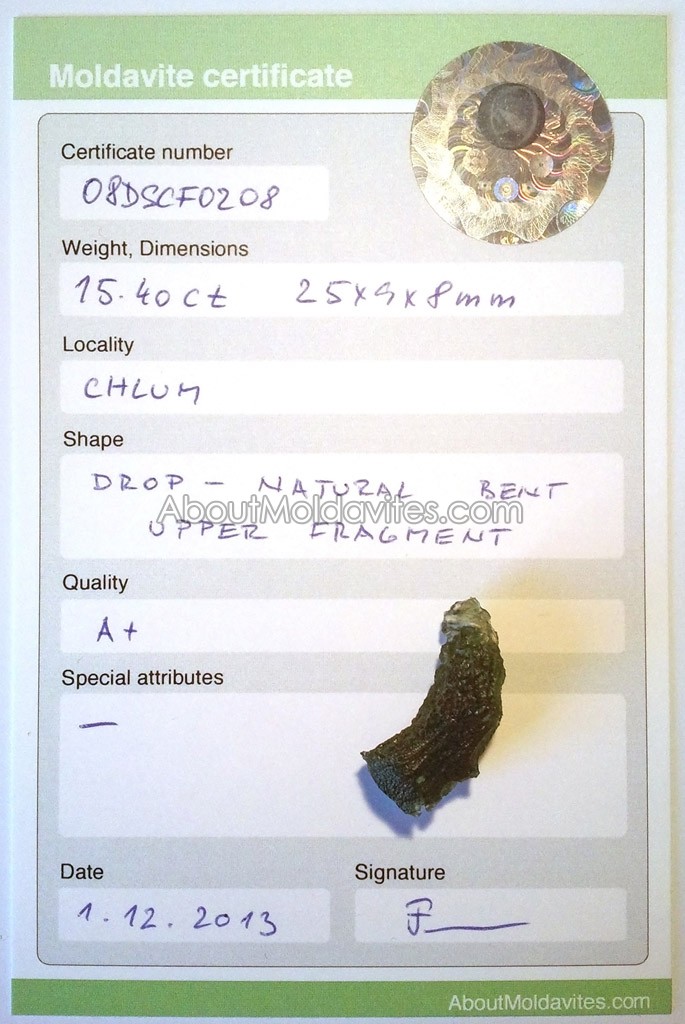 Moldavite certificate
Certificate number
08DSCF0208
Weight, Dimensions
15.40 ct 25x9x8mm
Locality
CHLUM
Shape
DROP - NATURAL BENT
AboutMoldavites.com
UPPER FRAGMENT
Quality
A+
Special attributes
—
Date
Signature
1.12.2013
AboutMoldavites.com